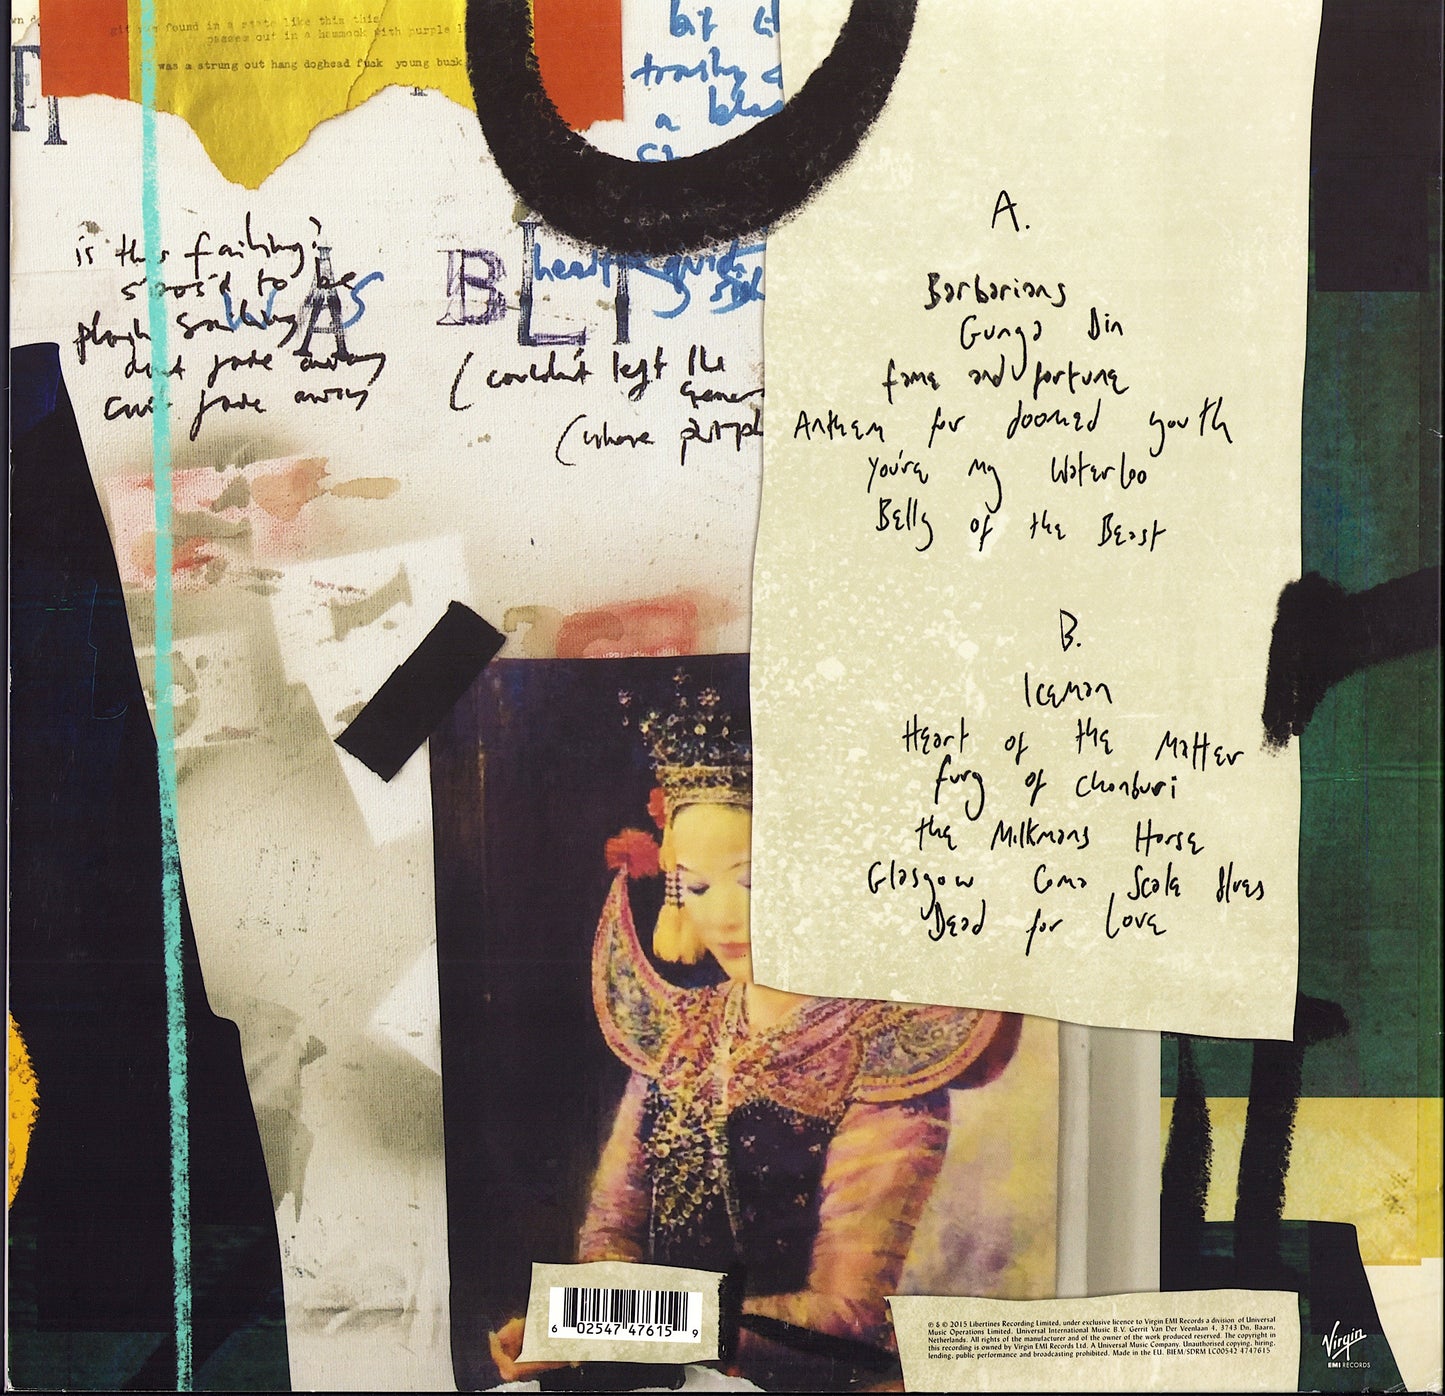 git found in a state like this this
passes out in a hammock with purple
was a strung out hang doghead fuck young buck
bit
trashy
a
is this failing?
spos'd to be
plain sailing
dont fade away
cant fade away
WAS
BLI
head
quick
(couldn't left the
(where purpl
A.
Barbarians
Gunga Din
fame and fortune
Anthem for doomed youth
You're my Waterloo
Belly of the Beast
B.
Iceman
Heart of the Matter
fury of Chonburi
the Milkmans Horse
Glasgow Coma Scale Blues
Dead for Love
6 02547 47615 9
℗ & © 2015 Libertines Recording Limited, under exclusive licence to Virgin EMI Records a division of Universal
Music Operations Limited. Universal International Music B.V. Gerrit Van Der Veenlaan 4, 3743 Dn, Baarn,
Netherlands. All rights of the manufacturer and of the owner of the work produced reserved. The copyright in
this recording is owned by Virgin EMI Records Ltd. A Universal Music Company. Unauthorised copying, hiring,
lending, public performance and broadcasting prohibited. Made in the EU. BIEM/SDRM LC00542 4747615
Virgin
EMI RECORDS